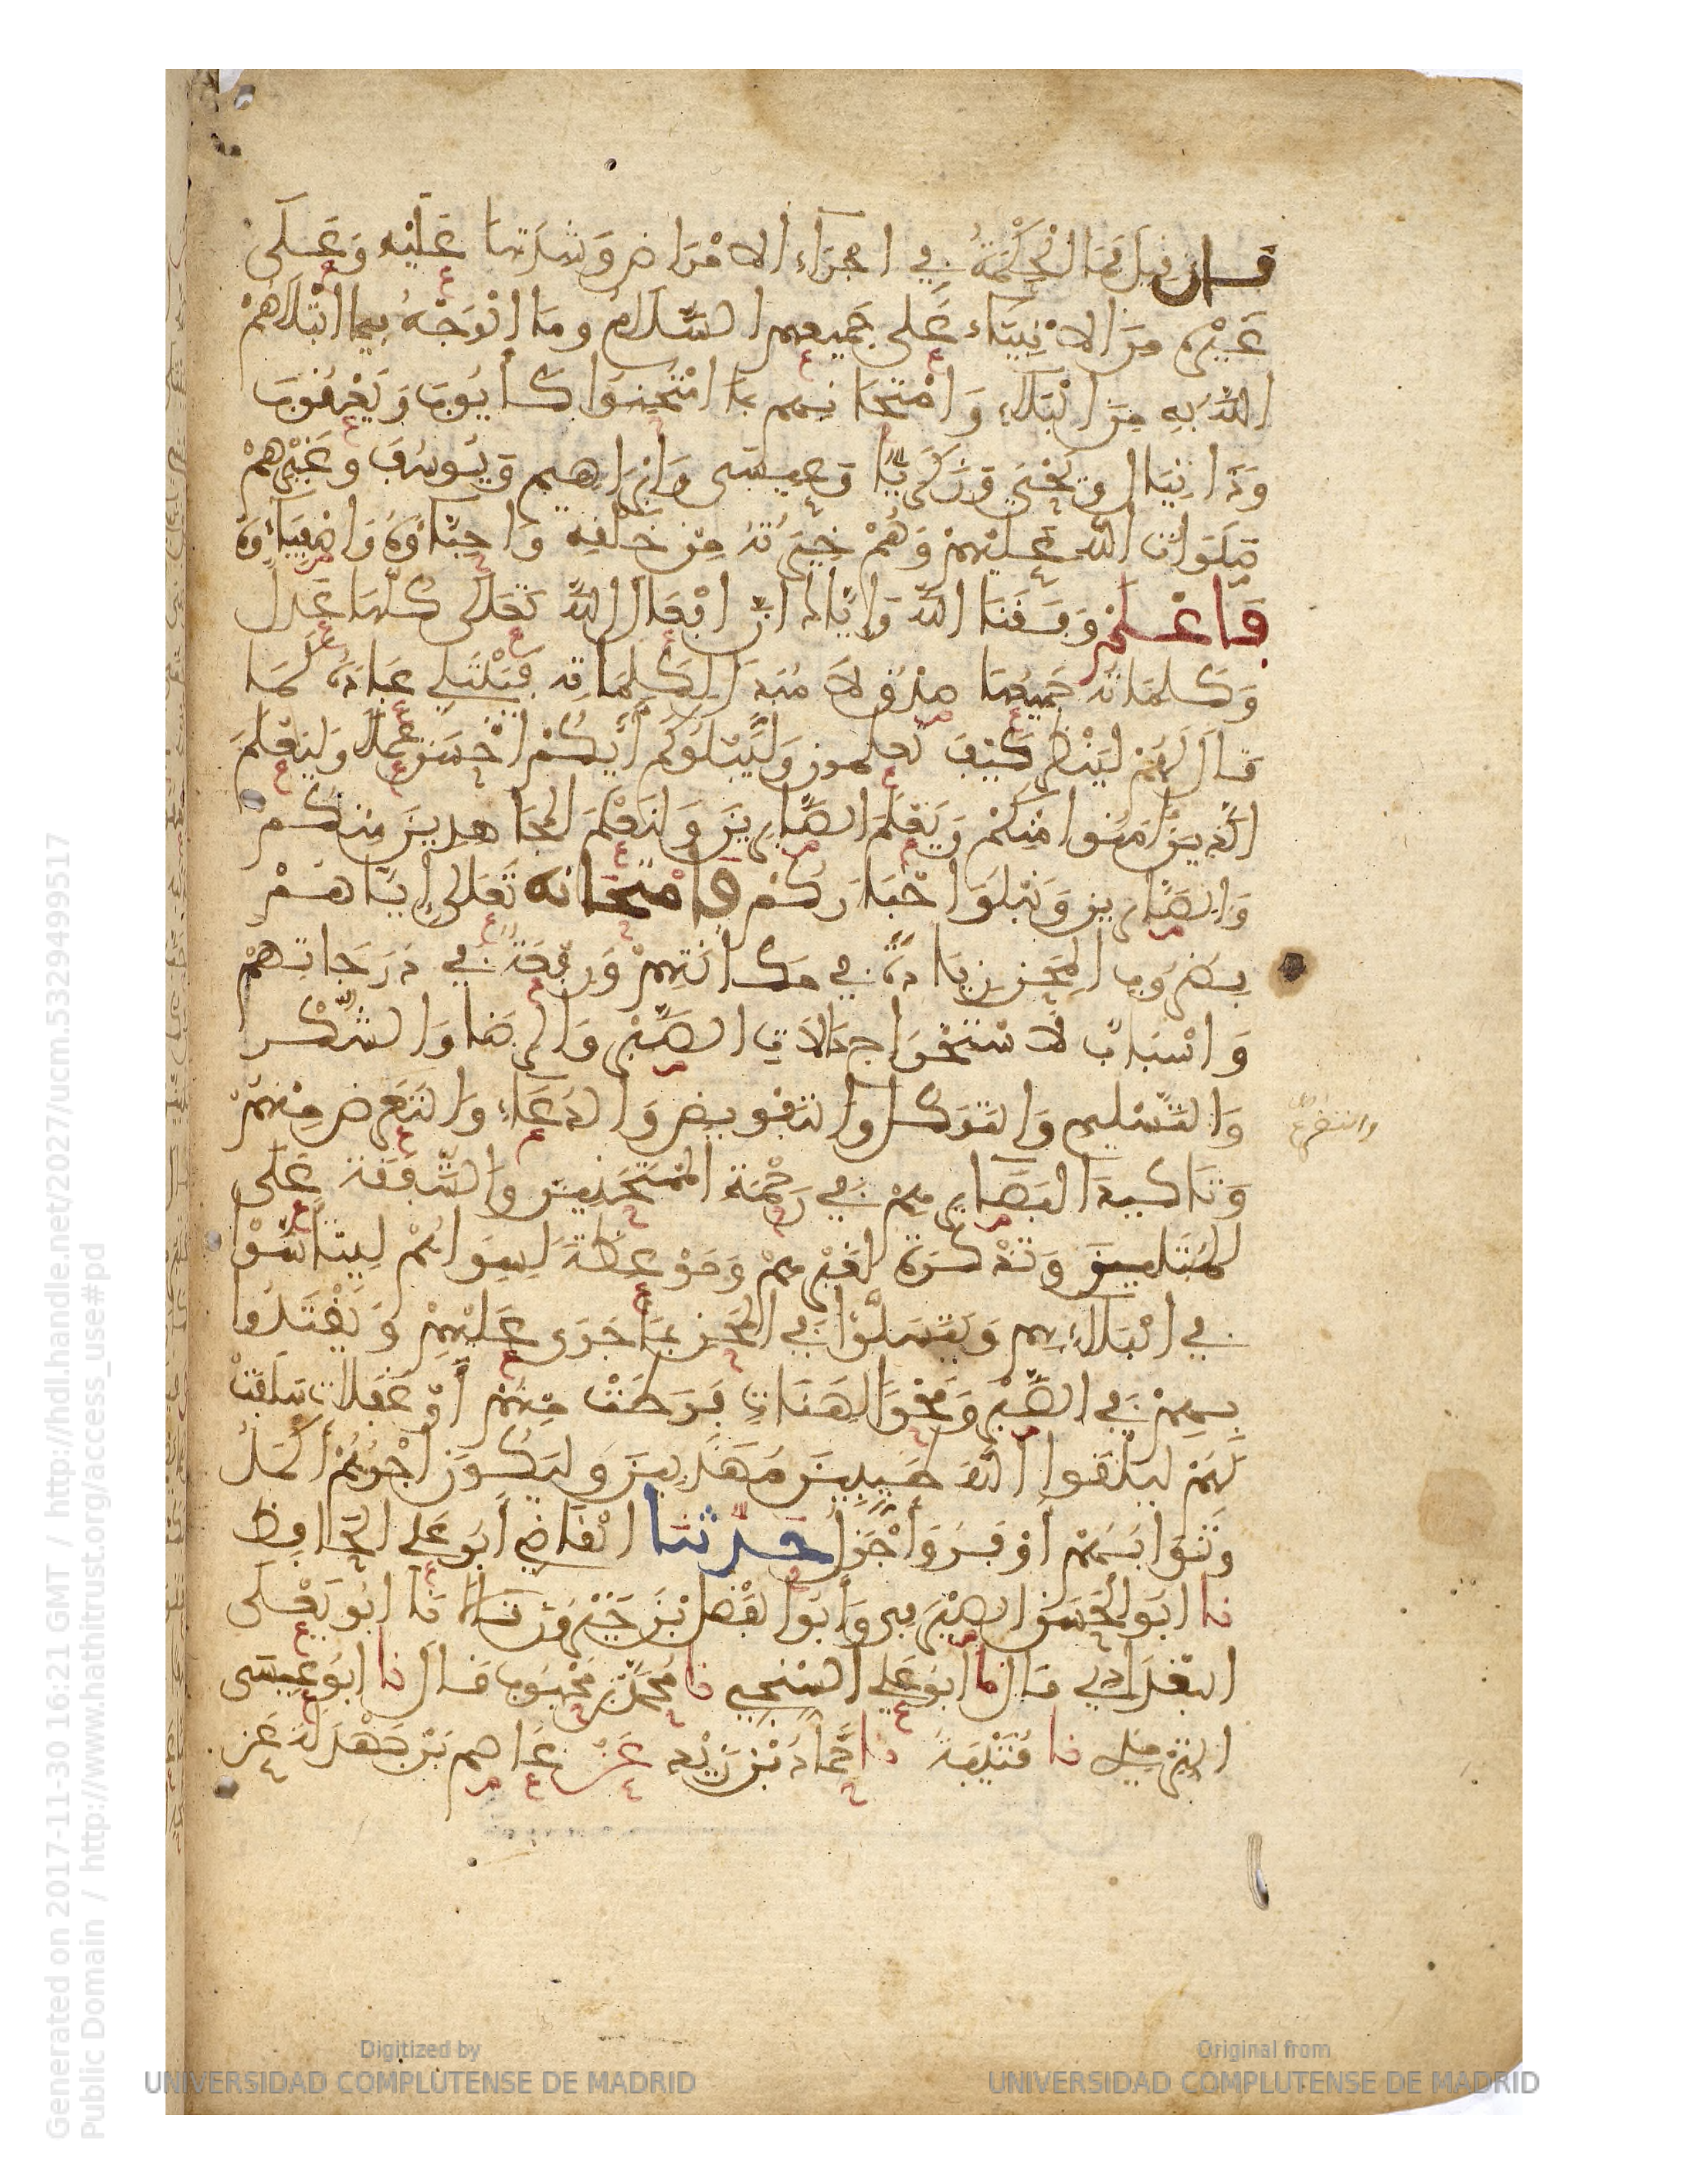 فإن قيل فما الحكمة في اجراء الامراض وشدتها عليه وعلى
غيره من الانبياء على جميعهم السلام وما الوجه فيما ابتلاهم
الله به من البلاء وامتحانهم بما امتحنوا كأيوب ويعقوب
ودانيال ويحيى وزكرياء وعيسى وابراهيم ويوسف وغيرهم
صلوات الله عليهم وهم خيرته من خلقه واحباؤه واصفياؤه
فاعلم وفقنا الله واياك ان افعال الله تعلى كلها عدل
وكلماته جميعها صدق لا مبدل لكلماته يبتلي عباده كما
قال لهم لينظر كيف تعملون وليبلوكم أيكم احسن عملا وليعلم
الذين امنوا منكم ويعلم الصابرين ولنعلم المجاهدين منكم
والصابرين ونبلوا اخباركم فامتحانه تعلى إياهم
بضروب المحن زيادة في مكانتهم ورفعة في درجاتهم
واسباب لاستخراج حالات الصبر والرضا والشكر
والتسليم والتوكل والتفويض والدعاء والتضرع منهم
والتضرع
وتاكيد البصايرهم في رحمة الممتحنين والشفقة على
المبتلين وتذكرة لغيرهم وموعظة لسواهم ليتأسوا
في البلاء بهم ويتسلوا في المحن بما جرى عليهم ويقتدوا
بهم في الصبر ومحو لهنات فرطت منهم أو غفلات سلفت
لهم ليلقوا الله طيبين مهذبين وليكون أجرهم أكمل
وثوابهم أوفر وأجزل حدثنا القاضي أبو علي الحافظ
نا ابو الحسن الصيرفي وأبو الفضل بن خيرون قالا نا ابو يعلى
البغدادي قال نا أبو علي السنجي نا محمد بن محبوب قال نا ابو عيسى
الترمذي نا قتيبة نا حماد بن زيد عن عاصم بن بهدلة عن
Generated on 2017-11-30 16:21 GMT / http://hdl.handle.net/2027/ucm.5329499517
Public Domain / http://www.hathitrust.org/access_use#pd
Digitized by
UNIVERSIDAD COMPLUTENSE DE MADRID
Original from
UNIVERSIDAD COMPLUTENSE DE MADRID